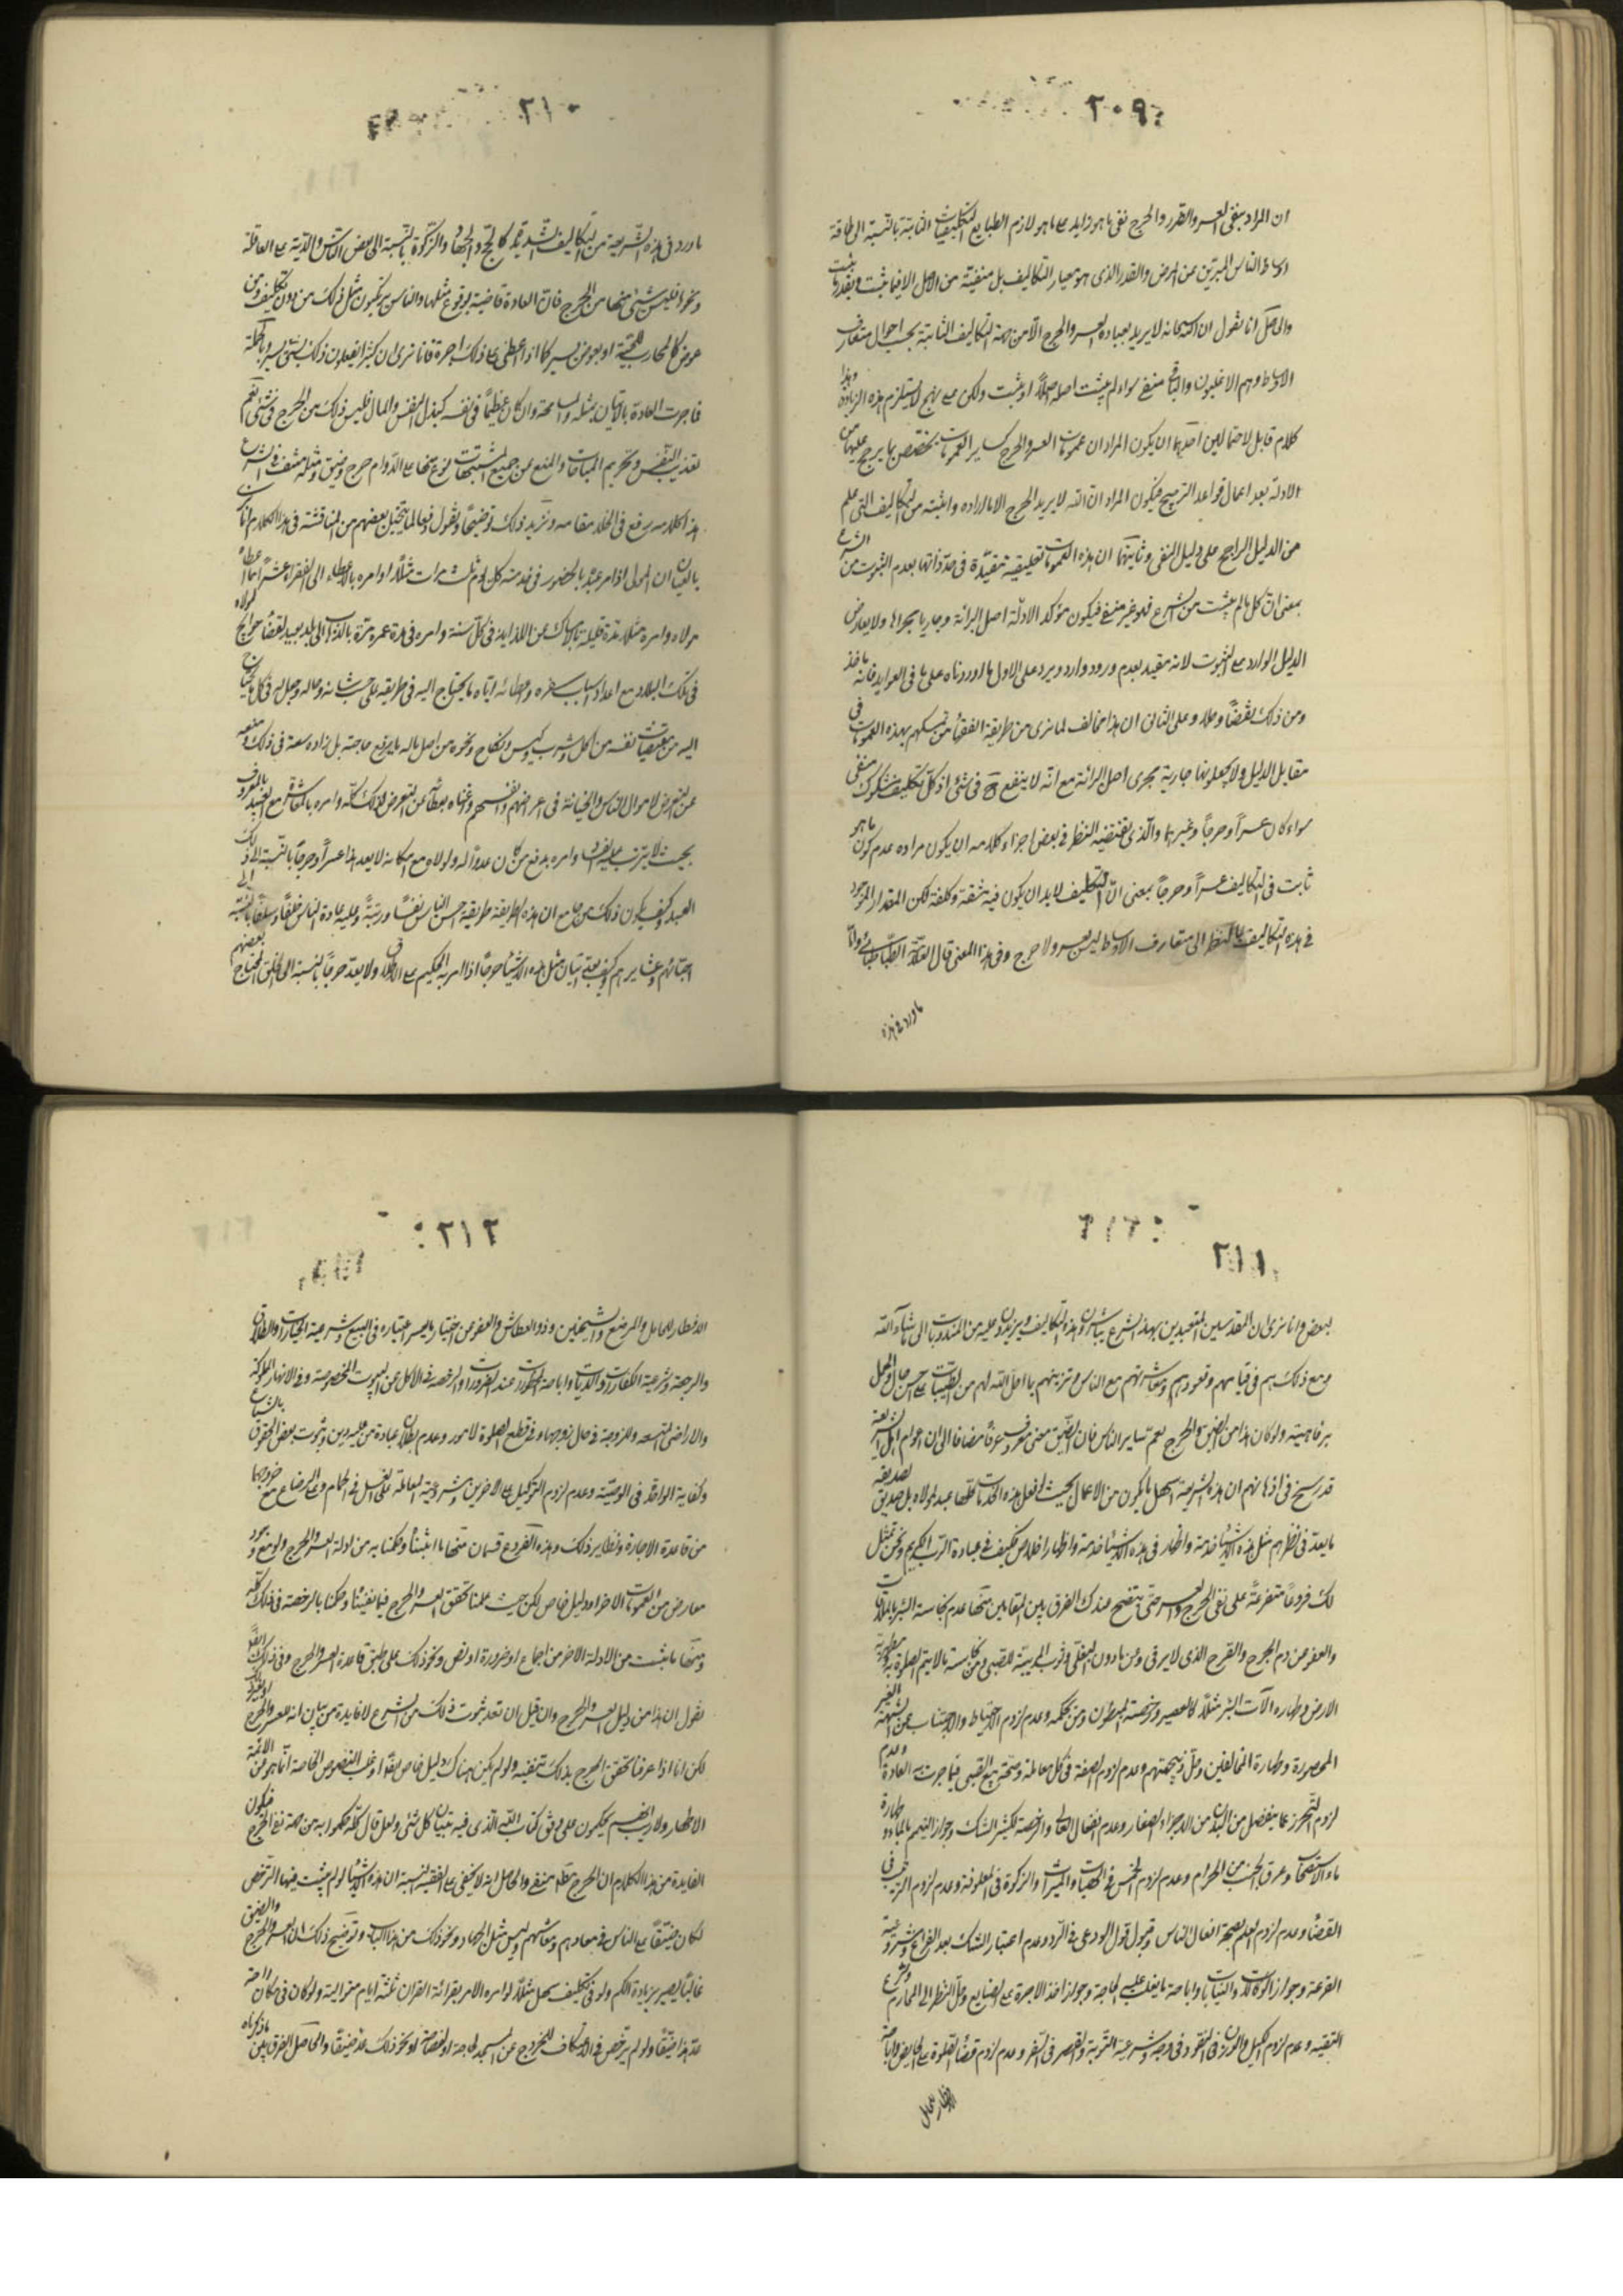 ٢٠٩
ان المراد بنفى العسر والضرر والحرج نفى ما هو زايد على ما هو لازم الطبايع التكليفات الثابتة بالنسبة الى طاقة
اوساط الناس المبرئين عن المرض والقدر الذى هو معيار التكاليف بل منفية من الاصل الا فيما ثبت وبقدر ما ثبت
والحاصل انا نقول ان الله سبحانه لا يريد بعباده العسر والحرج الا من جهة التكاليف الثابتة بحسب احوال متعارف
الاوساط وهم الاغلبون والباقى منفى سواء لم يثبت اصله اصلا او ثبت ولكن على نهج لا يستلزم هذه الزيادة وهذا
كلام قابل لاحتمالين احدهما ان يكون المراد ان عمومات العسر والحرج كساير العمومات يخصص بما يرجح عليها من
الادلة بعد اعمال قواعد الترجيح فيكون المراد ان الله لا يريد الحرج الا ما اراده واثبته من التكاليف التى علم
من الدليل الراجح على دليل النفى وثانيهما ان هذه العمومات تعليقية مقيدة فى حد ذاتها بعدم الثبوت من الشرع
بمعنى ان كل ما لم يثبت من الشرع فهو غير منفى فيكون مؤكد الادلة اصل البرائة وجاريا مجراها ولا يعارض
الدليل الوارد على الثبوت لانه مقيد بعدم ورود وارد ويرد على الاول ما اوردناه على ما فى العوايد فانه ماخذ
ومن ذلك نقضا وحلا وعلى الثانى ان هذا مخالف لما نرى من طريقة الفقهاء من تمسكهم بهذه العمومات فى
مقابل الدليل ولا يجعلونها جارية مجرى اصل البرائة مع انه لا ينفع ح فى شئ اذ كل تكليف مشكوك منفى
سواء كان عسرا وحرجا وغيرهما والذى يقتضيه النظر فى بعض اجزاء كلامه ان يكون مراده عدم كون ما هو
ثابت فى التكاليف عسرا وحرجا بمعنى ان التكليف لا بد ان يكون فيه مشقة وكلفة لكن المقدار الموجود
فى هذه التكاليف بالنظر الى متعارف الاوساط ليس بعسر ولا حرج وفى هذا المعنى قال العلامة الطباطبائى واما
ما ورد فى هذه
٢١٠
ما ورد فى هذه الشريعة من التكاليف الشديدة كالحج والجهاد والزكوة بالنسبة الى بعض الناس والدية على العاقلة
ونحوها فليس شئ منها من الحرج فان العادة قاضية بوقوع مثلها والناس يرتكبون مثل ذلك من دون تكليف ومن
عوض كالمحارب للحمية او بعوض يسير كما اذا اعطى على ذلك اجرة فانا نرى ان كثيرا يفعلون ذلك بشئ يسير وبالجملة
فما جرت العادة بالاتيان بمثله والمسامحة وان كان عظيما فى نفسه كبذل النفس والمال فليس ذلك من الحرج فى شئ نعم
تعذيب النفس وتحريم المباحات والمنع عن جميع المشتهيات او نوع منها على الدوام حرج وضيق ومثله منتف فى الشرع
هذا كلامه رفع فى الخلد مقامه ونزيد ذلك توضيحا ونقول دفعا لما يتخيل بعضهم من المناقشة فى هذا الكلام انا نرى
بالعيان ان المولى اذا امر عبده بالحضور فى خدمته كل يوم ثلث مرات مثلا او امره بالاعطاء الى الفقراء عشر ما اعطاه
مولاه وامره مثلا مدة قليلة بالامساك عن اللذايذ فى كل سنة وامره فى مدة عمره مرة بالذهاب الى بلد بعيد لقضاء حوائج لمولاه
فى تلك البلاد مع اعداد اسباب سفره واعطائه اياه ما يحتاج اليه فى طريقه على حسب شانه وحاله وجعل له فى كل ما يحتاج
اليه من مقتضيات نفسه من اكل وشرب ولبس ونكاح ونحوه من اصل ماله ما يرفع حاجته بل زاده سعة فى ذلك ومنعه
عن التعرض لاموال الناس والخيانة فى اعراضهم وانفسهم واغناه بعطائه عن التعرض لذلك كله وامره بالمعاشرة مع العبيد بالمعروف
بحيث لا يترتب عليه الفساد وامره بدفع من كان عدوا له ولمولاه مع امكانه لا يعد هذا عسرا وحرجا بالنسبة الى ذلك
العبد وكيف يكون ذلك حرجا مع ان هذه الطريقة طريقة احسن الناس نفسا ورتبة وعليه عادة الناس خلفا وسلفا بالنسبة الى
احبائهم وعشايرهم وكيف يعد اتيان مثل هذه الاشياء حرجا اذا امر به الحكيم على الاطلاق ولا يعد حرجا بالنسبة الى الخلق المحتاج بعضهم
٢١١
لبعض وانا نرى ان المقدسين المتعبدين بهذا الشرع يباشرون هذه التكاليف ويزيدون عليه من المندوبات الى ما شاء الله
ومع ذلك هم فى قيامهم وقعودهم ومعاشرتهم مع الناس وتزينهم بما احل الله لهم من الطيبات على احسن حال واكمل
رفاهيته ولو كان هذا من الضيق والحرج لعم ساير الناس فان الضيق معنى معروف عرفا مضافا الى ان عوام اهل الشريعة
قد رسخ فى اذهانهم ان هذه الشريعة اسهل ما يكون من الاعمال بحيث لو فعل هذه الخدمات كلها عبد لمولاه بل صديق لصديقه
ما يعد فى نظرهم مثل هذه الاشياء خدمة واظهار فى هذه الاشياء خدمة واظهار اخلاص فكيف فى عبادة الرب الكريم ونحن نمثل
لك فروعا متفرعة على نفى الحرج والعسر حتى يتضح عندك الفرق بين المقامين منها عدم نجاسة البئر بالملاقات
والعفو عن دم الجروح والقروح الذى لا يرقى وعن ما دون البغلى وثوب المربية للصبى وعن نجاسة ما لا يتم الصلوة به ومطهرية
الارض وطهارة آلات البئر مثلا كالعصير ورخصة المبطون ومن بحكمه وعدم لزوم الاحتياط والاجتناب عن الشبهة الغير
المحصورة وطهارة المخالفين وحل ذبيحتهم وعدم لزوم الصيغة فى كل معاملة وصحة بيع الصبى فيما جرت به العادة وعدم
لزوم التحرز عما ينفصل من البدن من الاجزاء الصغار وعدم انفعال العالى والرخصة لكثير الشك وجواز التيمم بالماء وطهارة
ماء الاستنجاء وعرق الجنب من الحرام وعدم لزوم الخمس فى الهبات والميراث والزكوة فى المعلوفة وعدم لزوم الترتيب فى
القضاء وعدم لزوم العلم بصحة افعال الناس وقبول قول الودعى فى الرد وعدم اعتبار الشك بعد الفراغ ومشروعية
القرعة وجواز الوكالات والنيابات واباحة ما يغلب عليه الحاجة وجواز اخذ الاجرة على الصنايع وحل النظر الى المحارم وشرع
التقية وعدم لزوم الكيل والوزن فى النقود فى وجه وشرعية التوبة والقصر فى السفر وعدم لزوم قضاء الصلوة على الحايض واباحة
الافطار للحامل
٢١٢
الافطار للحامل والمرضع والشيخين وذو العطاش والعفو عن اختبار ما يعسر اختباره فى البيع وشرعية الخيارات والطلاق
والرجعة وشرعية الكفارات والديات واباحة المحظورات عند الضرورات والرخصة فى الاكل عن البيوت المخصوصة وفى الانهار المملوكة
والاراضى المتسعة وللزوجة فى مال زوجها وفى قطع الصلوة لامور وعدم بطلان عبادة من عليه دين وثبوت بعض الحقوق بالشياع
وكفاية الواحد فى الوصية وعدم لزوم التوكيل على الاخرين ومشروعية المعاملة على الغسل فى الحمام وعلى الرضاع مع خروجهما
من قاعدة الاجارة ونظاير ذلك وهذه الفروع قسمان منها ما اثبتناه وحكمنا به من ادلة العسر والحرج ولو مع وجود
معارض من العمومات الاخر او دليل خاص لكن حيث علمنا تحقق العسر والحرج فيها نفيناه وحكمنا بالرخصة فى ذلك كله
ومنها ما ثبت من الادلة الاخر من اجماع او ضرورة او نص ونحو ذلك على طبق قاعدة العسر والحرج وفى ذلك ايضا
نقول ان هذا من دليل العسر والحرج وان قيل ان بعد ثبوت ذلك من الشرع لا فايدة من بيان انه للعسر والحرج او لغيره
لكن انا اذا عرفنا تحقق الحرج بذلك ننفيه ولو لم يكن هناك دليل خاص بعد او غلب النصوص الخاصة انما هو من الائمة
الاطهار ولا ريب انهم يحكمون على وفق كتاب الله الذى فيه تبيان كل شئ ولعل قال كله حكموا به من جهة نفى الحرج فيكون
الفايدة من هذا الكلام ان الحرج مطلقا منفى والحاصل انه لا يخفى على الفقيه النبيه ان هذه الاشياء لو لم يثبت فيها الترخص
لكان ضيقا على الناس فى معادهم ومعاشهم وليس مثل الجهاد ونحو ذلك من هذا الباب وتوضيح ذلك ان العسر والحرج والضيق
غالبا يصير بزيادة الكم ولو فى تكليف سهل مثلا لو امره الامر بقرائة القران ثلثة ايام متوالية ولو كان فى مكان راحة
عد هذا ضيقا ولو لم يرخص فى الاعتكاف للخروج عن المسجد لحاجة او لفضاحة او نحو ذلك عد ضيقا والحاصل الفرق بين ما ذكرناه